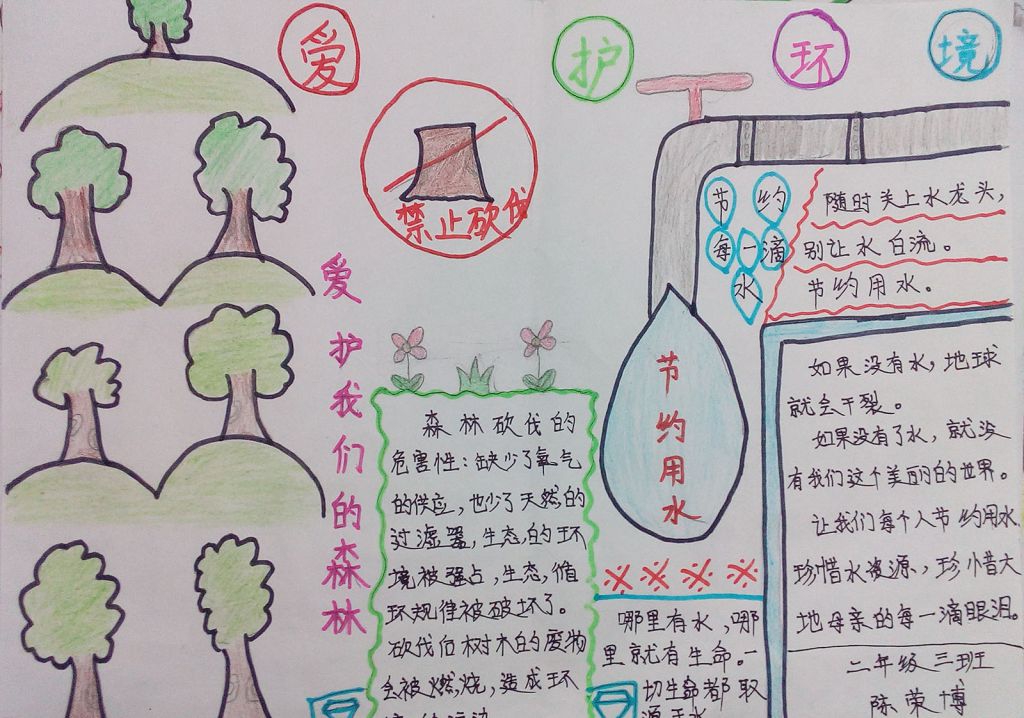 爱护环境
禁止砍伐
爱护我们的森林
节约
每一滴
水
随时关上水龙头，
别让水白流。
节约用水。
节约用水
森林砍伐的
危害性：缺少了氧气
的供应，也少了天然的
过滤器，生态的环
境被强占，生态，循
环规律被破坏了。
砍伐后树木的废物
会被燃烧，造成环
哪里有水，哪
里就有生命。一
切生命都取
源于水
如果没有水，地球
就会干裂。
如果没有了水，就没
有我们这个美丽的世界。
让我们每个人节约用水
珍惜水资源，珍惜大
地母亲的每一滴眼泪。
二年级三班
陈荣博